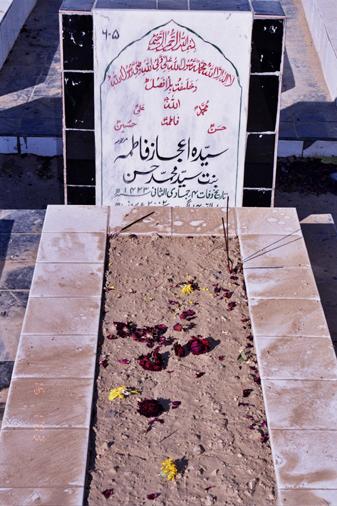 ۶۵
بسم اللہ الرحمن الرحیم
لا الہ الا اللہ محمد رسول اللہ علی ولی اللہ وصی رسول اللہ
وخلیفتہ بلا فصل
اللہ
محمد علی
فاطمہ
حسن حسین
سیدہ اعجاز فاطمہ
بنت سید محمد حسن
تاریخ وفات ۴ جمادی الثانی ۱۴۲۳ھ